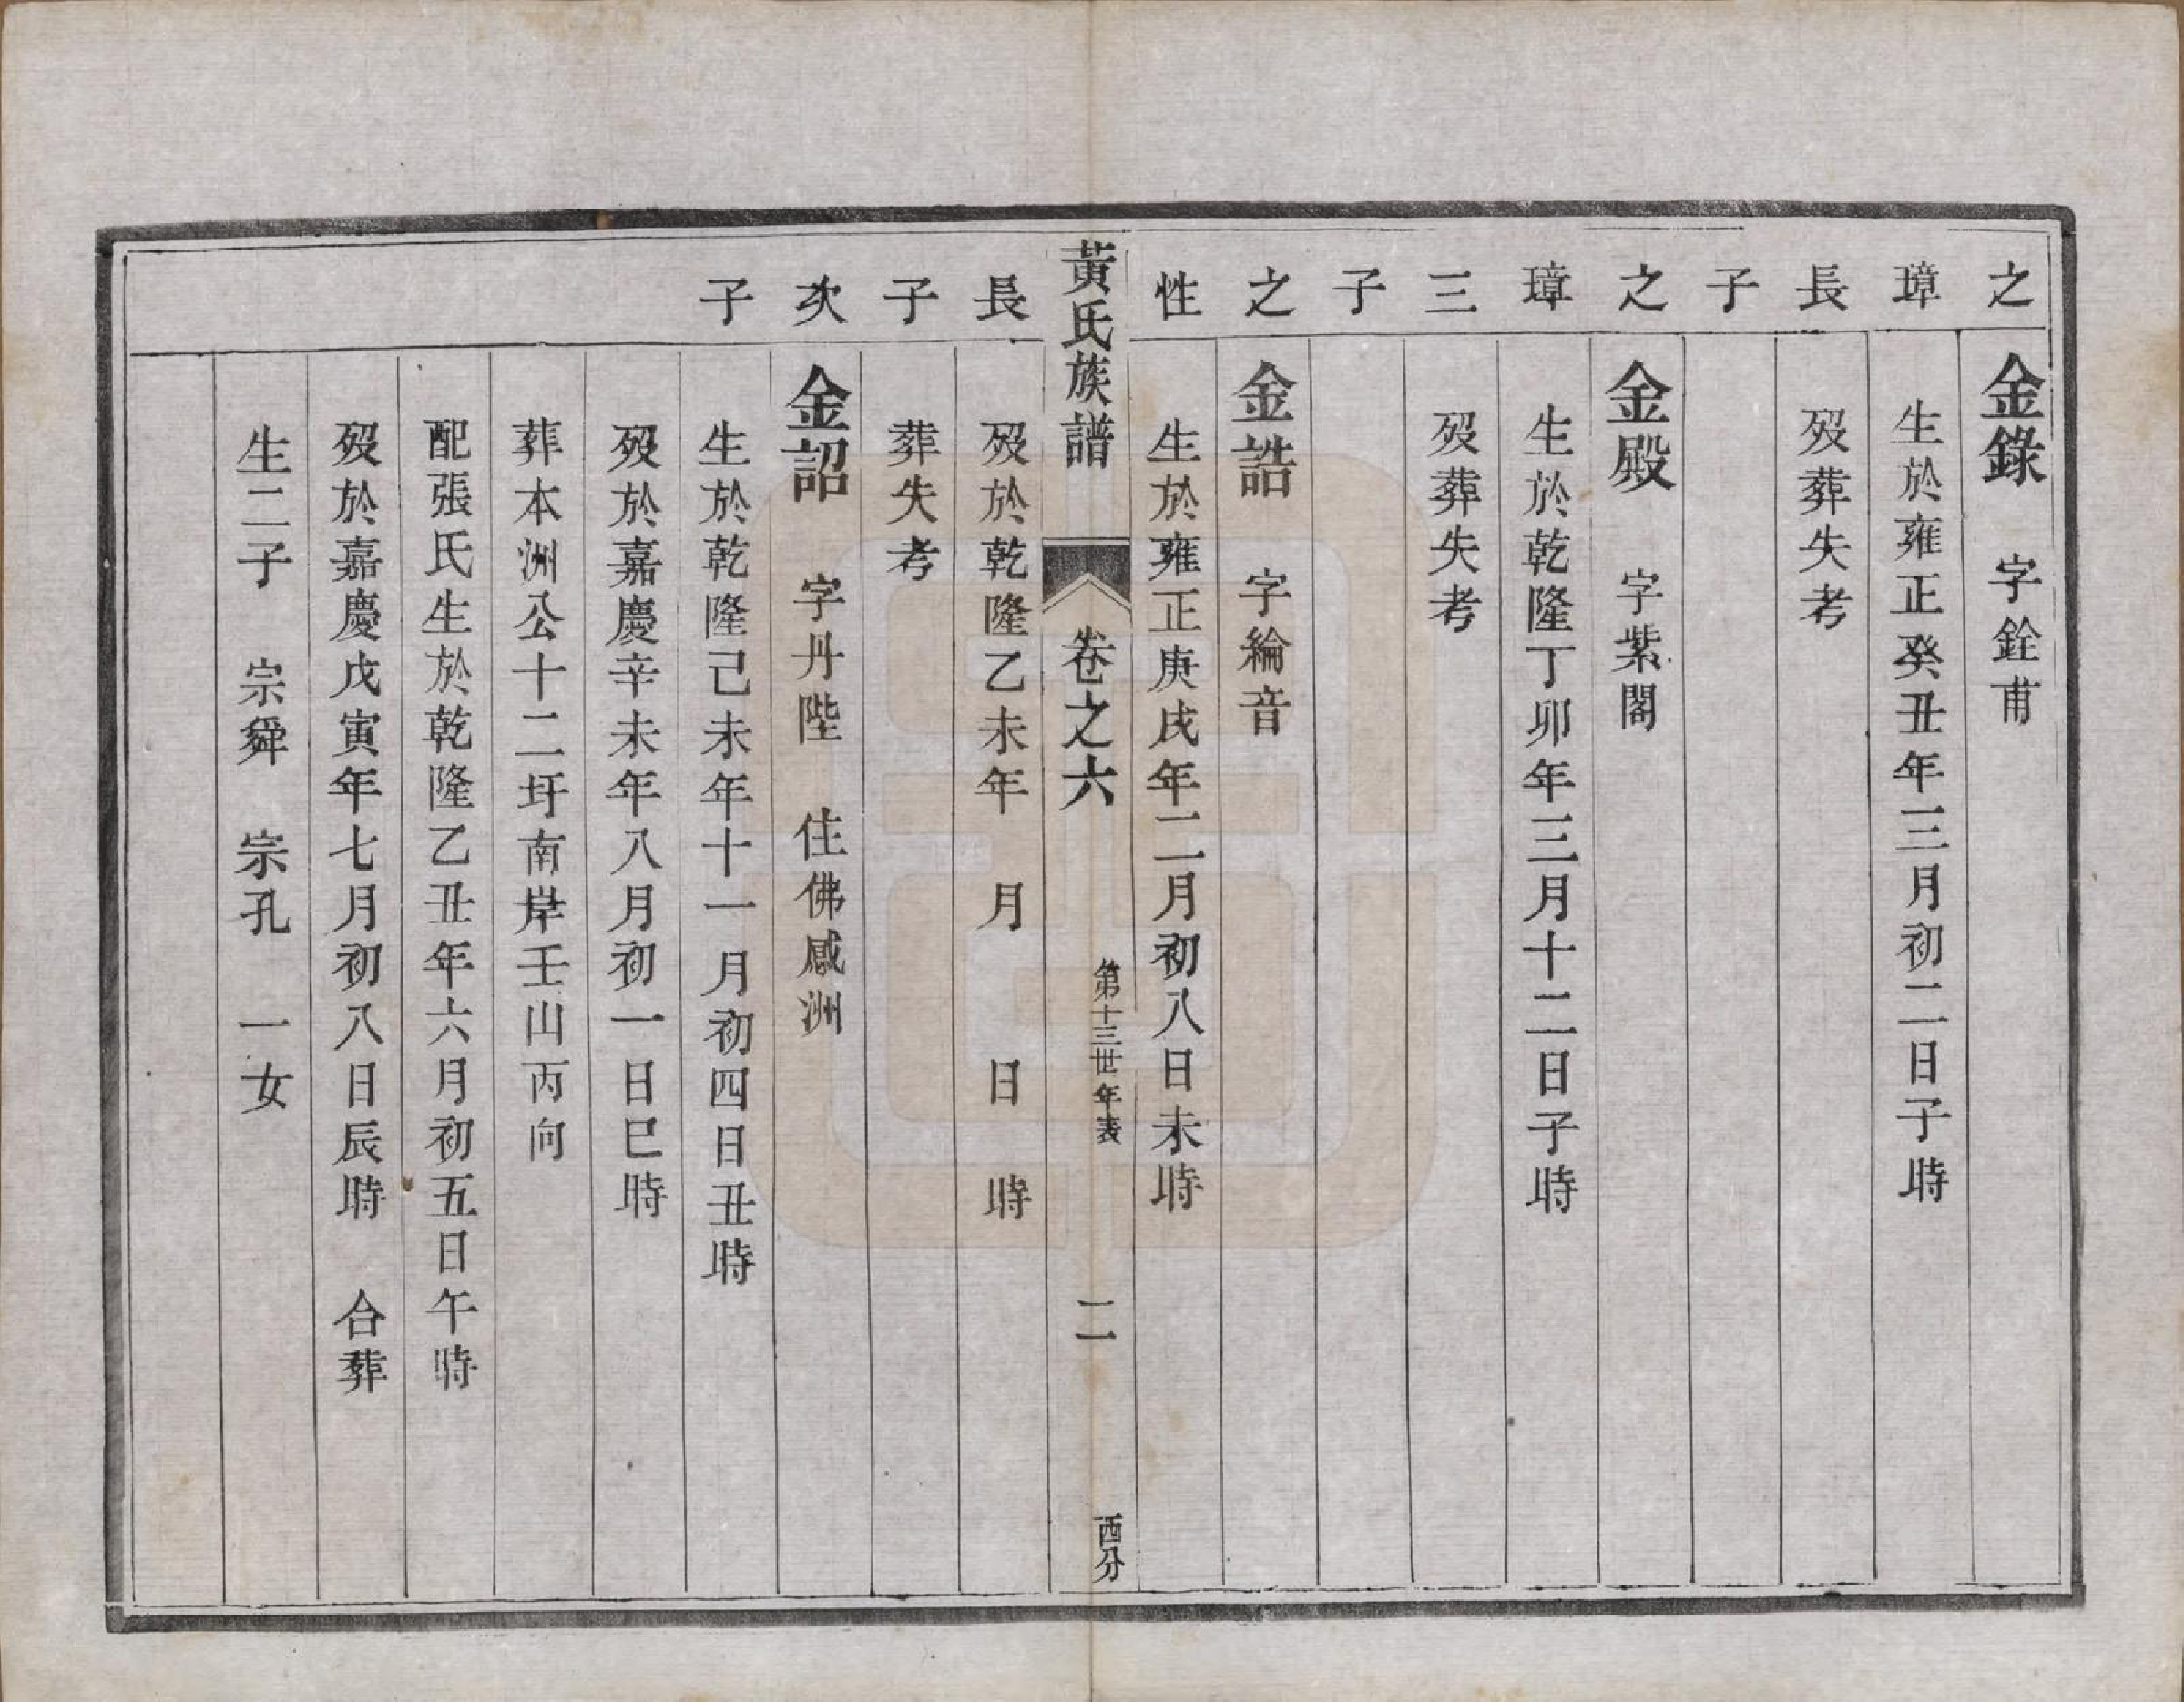 之
金錄　字銓甫
璋
生於雍正癸丑年三月初二日子時
長
歿葬失考
子
之
金殿　字紫閣
璋
生於乾隆丁卯年三月十二日子時
三
歿葬失考
子
之
金誥　字綸音
性
生於雍正庚戌年二月初八日未時
黃氏族譜　卷之六　第十三世年表　二　酉分
長
歿於乾隆乙未年　月　日　時
子
葬失考
次
金詔　字丹陛　住佛感洲
子
生於乾隆己未年十一月初四日丑時
歿於嘉慶辛未年八月初一日巳時
葬本洲公十二圩南岸壬山丙向
配張氏生於乾隆乙丑年六月初五日午時
歿於嘉慶戊寅年七月初八日辰時　合葬
生二子　宗舜　宗孔　一女